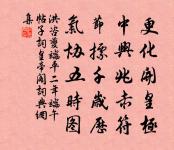 更化開皇極
中興兆赤符
節標千歲歷
氣協五時圖
洪咨夔端平二年端午
帖子詞皇帝閣詞典網
集